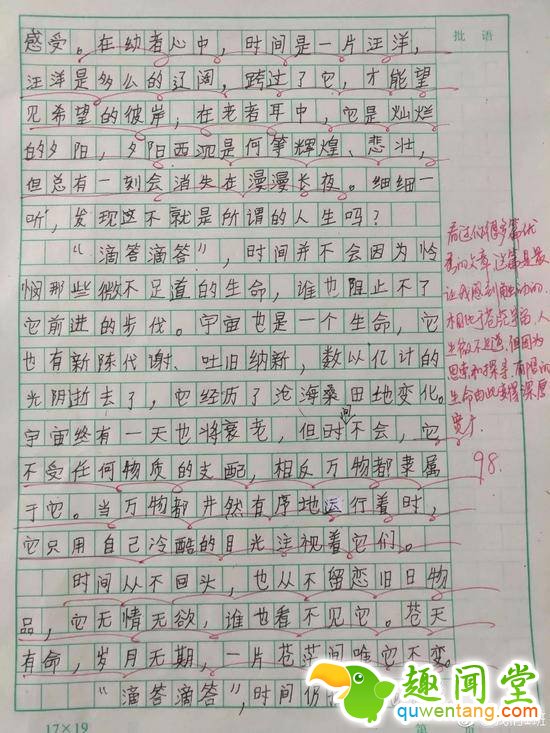 批语
感受。在幼者心中，时间是一片汪洋，
汪洋是多么的辽阔，跨过了它，才能望
见希望的彼岸，在老者耳中，它是灿烂
的夕阳，夕阳西沉是何等辉煌、悲壮，
但总有一刻会消失在漫漫长夜。细细一
听，发现这不就是所谓的人生吗？
“滴答滴答”，时间并不会因为怜
悯那些微不足道的生命，谁也阻止不了
它前进的步伐。宇宙也是一个生命，它
也有新陈代谢、吐旧纳新，数以亿计的
光阴逝去了，它经历了沧海桑田地变化。
宇宙终有一天也将衰老，但时间不会，它
不受任何物质的支配，相反万物都隶属
于它。当万物都井然有序地运行着时，
它只用自己冷酷的目光注视着它们。
时间从不回头，也从不留恋旧日物
品，它无情无欲，谁也看不见它。苍天
有命，岁月无期，一片苍茫间唯它不变。
“滴答滴答”，时间仍
看过你很多篇优
秀的文章，这篇是最
让我感到触动的，
相比于苍茫宇宙，人
生微不足道，但因为
思考和探寻，有限的
生命由此变得深厚
宽广
98.
17×19
趣闻堂
quwentang.com